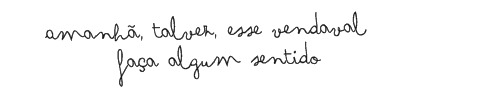 amanhã, talvez, esse vendaval
faça algum sentido